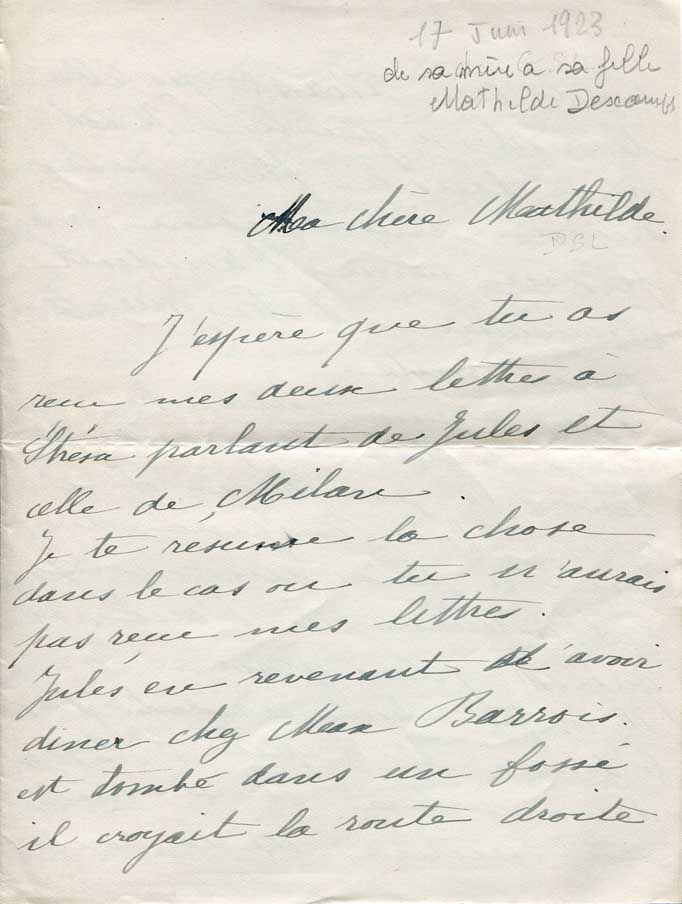 17 Juin 1923
de sa mère a sa fille
Mathilde Descamps
Ma chère Mathilde.
DBL
J'espère que tu as
recu mes deux lettres à
Strésa parlant de Jules et
celle de Milan.
Je te resume la chose
dans le cas ou tu n'aurais
pas recu mes lettres.
Jules en revenant d'avoir
diner chez Max Barrois.
est tombé dans un fossé
il croyait la route droite